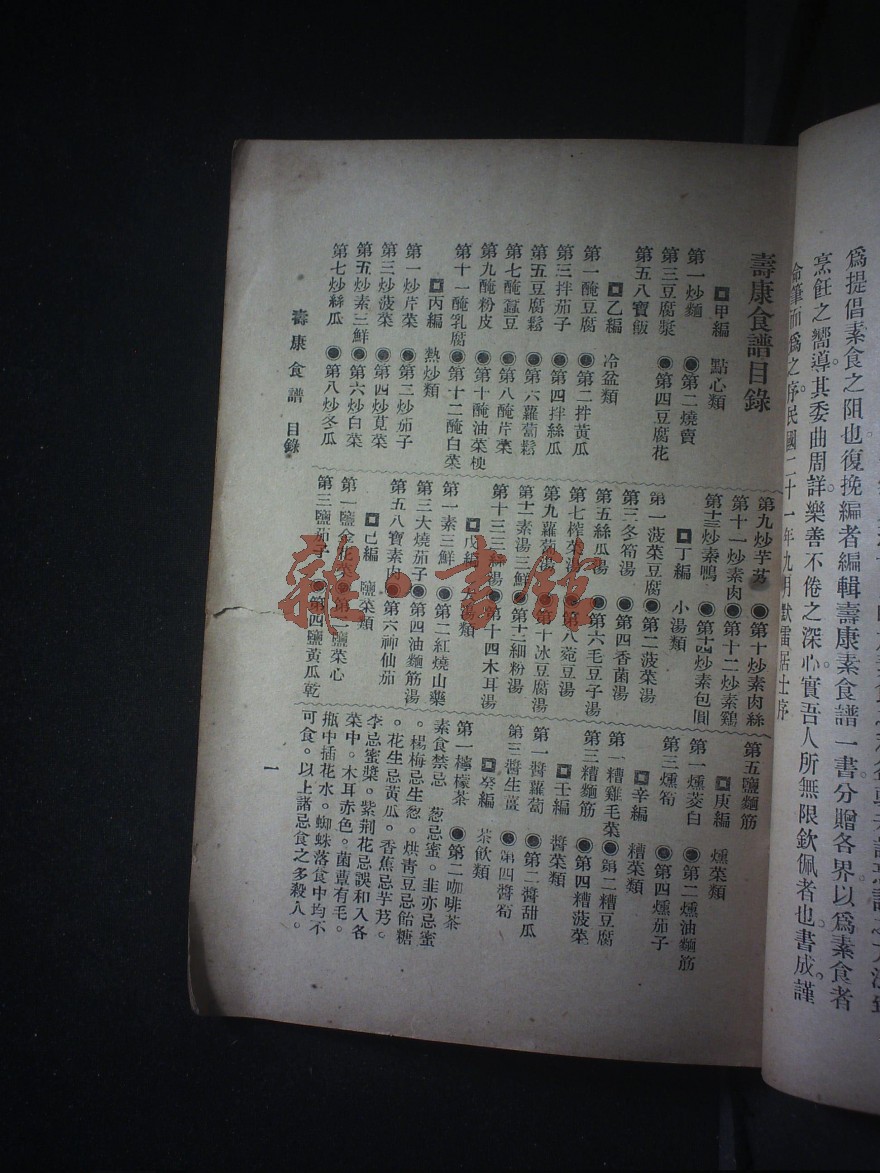 爲提倡素食之阻也復挽編者編輯壽康素食譜一書分贈各界以爲素食者
烹飪之嚮導其委曲周詳樂善不倦之深心實吾人所無限欽佩者也書成謹
筆而爲之序民國二十一年九月默雷居士序
壽康食譜目錄
甲編 點心類
第一炒麵 ●第二燒賣
第三豆腐漿 ●第四豆腐花
第五八寶飯
乙編 冷盆類
第一醃豆腐 ●第二拌黃瓜
第三拌茄子 ●第四拌絲瓜
第五豆腐鬆 ●第六蘿蔔鬆
第七醃蠶豆 ●第八醃芹菜
第九醃粉皮 ●第十醃油菜梗
第十一醃乳腐 ●第十二醃白菜
丙編 熱炒類
第一炒芹菜 ●第二炒茄子
第三炒菠菜 ●第四炒莧菜
第五炒素三鮮 ●第六炒白菜
第七炒絲瓜 ●第八炒冬瓜
第九炒芋艿 ●第十炒素肉絲
第十一炒素肉 ●第十二炒素鷄
第十三炒素鴨 ●第十四炒素包圓
丁編 小湯類
第一菠菜豆腐 ●第二菠菜湯
第三冬筍湯 ●第四香菌湯
第五絲瓜湯 ●第六毛豆子湯
第七榨菜湯 第八菀豆湯
第九蘿蔔湯 第十冰豆腐湯
第十一素湯三鮮 第十二細粉湯
第十三三絲湯 ●第十四木耳湯
戊編 大湯類
第一素三鮮 ●第二紅燒山藥
第三大燒茄子 ●第四油麵筋湯
第五八寶素肉 ●第六神仙茄
己編 鹽菜類
第一鹽金花菜 ●第二鹽菜心
第三鹽茄子 ●第四鹽黃瓜乾
第五鹽麵筋
庚編 燻菜類
第一燻茭白 ●第二燻油麵筋
第三燻筍 ●第四燻茄子
辛編 糟菜類
第一糟雞毛菜 ●第二糟豆腐
第三糟麵筋 ●第四糟菠菜
壬編 醬菜類
第一醬蘿蔔 ●第二醬甜瓜
第三醬生薑 ●第四醬筍
癸編 茶飲類
第一檸檬茶 ●第二咖啡茶
素食禁忌 葱忌蜜。韭亦忌蜜
。楊梅忌生葱。烘青豆忌飴糖
。花生忌黃瓜。香蕉忌芋艿。
李忌蜜漿。紫荆花忌誤和入各
菜中。木耳赤色。菌蕈有毛。
瓶中插花水。蜘蛛落食中均不
可食。以上諸忌食之多殺人。
壽康食譜 目錄
一